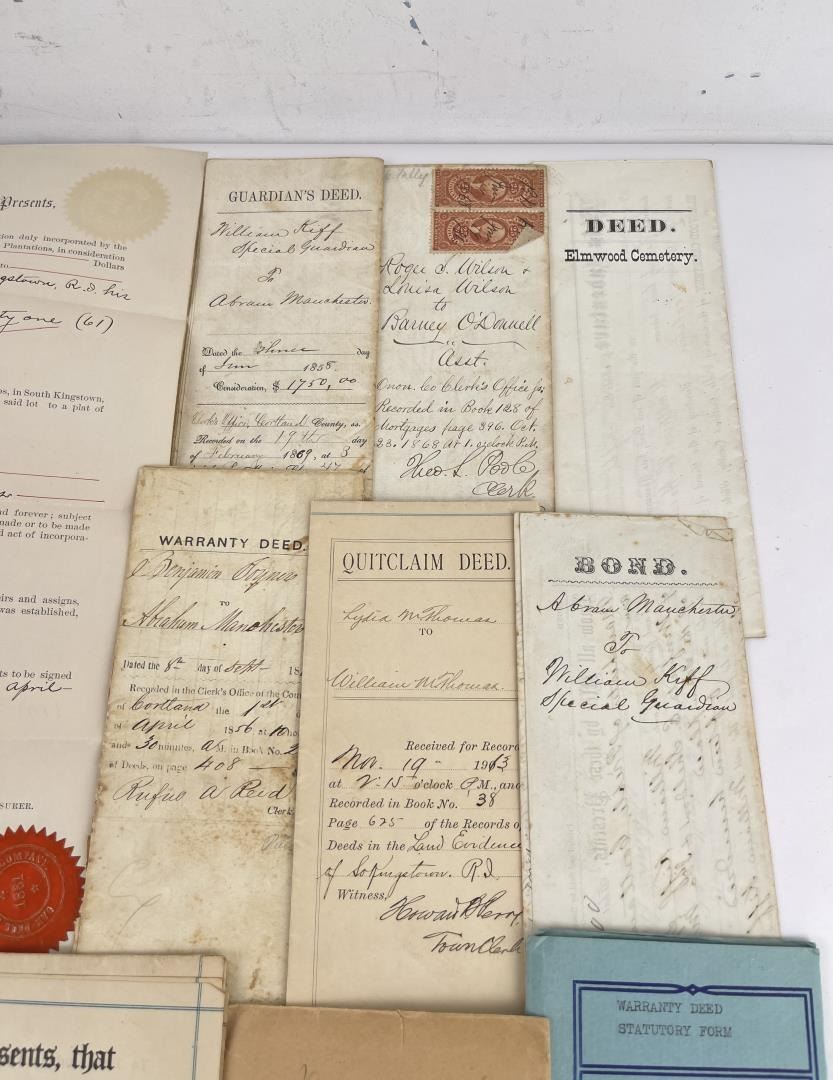 Presents,
tion duly incorporated by the
Plantations, in consideration
Dollars
to
gstown, R.I. his
ty one (61)
es, in South Kingstown,
said lot to a plat of
nd forever; subject
made or to be made
d act of incorpora-
irs and assigns,
was established,
ts to be signed
April
SURER.
COMPANY
1887
GUARDIAN'S DEED.
William Kiff
Special Guardian
To
Abram Manchester.
Dated the day
of 1858
Consideration, $ 1750,00
Clerk's Office, Cortland County, ss.
Recorded on the 19th day
of February 1869, at 3
Roger S. Wilson &
Louisa Wilson
to
Barney O'Donnell
Asst.
Onon. Co Clerk's Office
Recorded in Book 128 of
Mortgages page 396. Oct.
23. 1868 At 1, o'clock P.M.
Theo. L. Poole
Clerk
DEED.
Elmwood Cemetery.
WARRANTY DEED.
Benjamin
TO
Abraham Manchester
Dated the 8th day of Sept 18
Recorded in the Clerk's Office of the Cou
of Cortland the 1st
of April 1856, at 10 ho
and 30 minutes, A.M. in Book No. 2
of Deeds, on page 408
Rufus A Reed
Clerk
QUITCLAIM DEED.
Lydia M Thomas
TO
William M Thomas.
Received for Record
Nov. 19 1913
at 2.15 o'clock P.M., and
Recorded in Book No. 38
Page 625 of the Records o
Deeds in the Land Evidence
of So Kingstown. R.I.
Witness,
Howard B Perry
Town Clerk
BOND.
Abram Manchester.
To
William Kiff
Special Guardian
esents, that
WARRANTY DEED
STATUTORY FORM